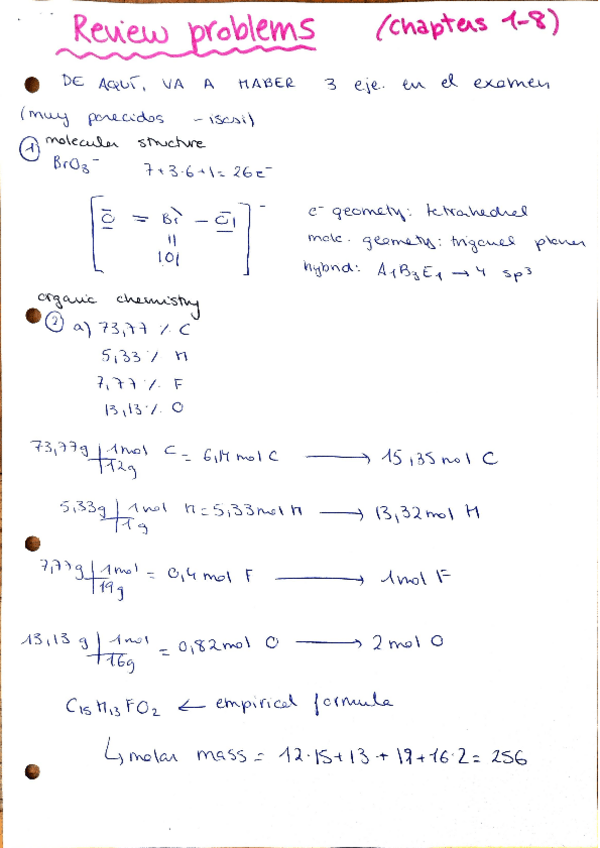 Review problems (chapters 1-8)
DE AQUÍ, VA A HABER 3 eje. en el examen
(muy parecidos - iscasi)
① molecular structure
BrO3⁻ 7+3·6+1= 26e⁻
[O = Br - O|]⁻
||
|O|
e⁻ geomety: tetrahedrel
mole. geometry: trigonal planer
hybrid: A1B3E1 → 4 sp³
organic chemistry
② a) 73,77 % C
5,33 % H
7,77 % F
13,13 % O
73,77g | 1mol C = 6,14 mol C → 15,35 mol C
12g
5,33g | 1mol H = 5,33 mol H → 13,32 mol H
1g
7,77g | 1mol = 0,4 mol F → 1mol F
19g
13,13 g | 1mol = 0,82 mol O → 2 mol O
16g
C15H13FO2 ← empirical formula
↳ molar mass = 12·15+13+19+16·2= 256